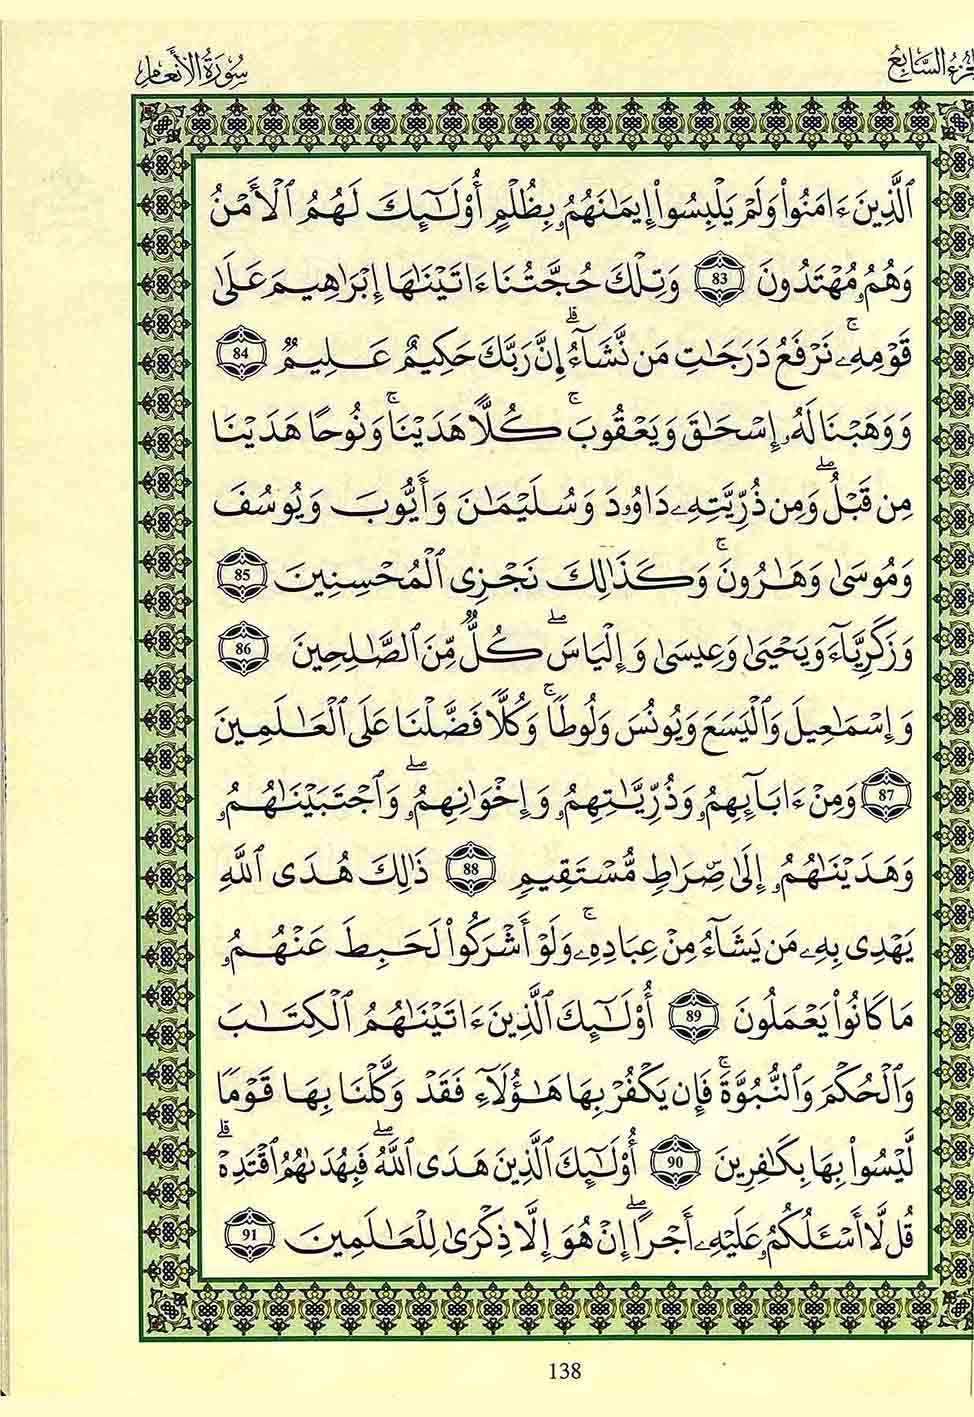 الجزء السابع
سورة الأنعام
ٱلَّذِينَ ءَامَنُوا۟ وَلَمْ يَلْبِسُوٓا۟ إِيمَٰنَهُمُۥ بِظُلْمٍ أُو۟لَٰٓئِكَ لَهُمُ ٱلْأَمْنُ
وَهُمُۥ مُهْتَدُونَ 83 وَتِلْكَ حُجَّتُنَا ءَاتَيْنَٰهَا إِبْرَٰهِيمَ عَلَىٰ
قَوْمِهِۦۚ نَرْفَعُ دَرَجَٰتِ مَن نَّشَآءُۗ إِنَّ رَبَّكَ حَكِيمٌ عَلِيمٌ 84
وَوَهَبْنَا لَهُۥ إِسْحَٰقَ وَيَعْقُوبَۚ كُلًّا هَدَيْنَاۚ وَنُوحًا هَدَيْنَا
مِن قَبْلُۖ وَمِن ذُرِّيَّتِهِۦ دَاوُۥدَ وَسُلَيْمَٰنَ وَأَيُّوبَ وَيُوسُفَ
وَمُوسَىٰ وَهَٰرُونَۚ وَكَذَٰلِكَ نَجْزِى ٱلْمُحْسِنِينَ 85
وَزَكَرِيَّآءَ وَيَحْيَىٰ وَعِيسَىٰ وَإِلْيَاسَۖ كُلٌّ مِّنَ ٱلصَّٰلِحِينَ 86
وَإِسْمَٰعِيلَ وَٱلْيَسَعَ وَيُونُسَ وَلُوطًاۚ وَكُلًّا فَضَّلْنَا عَلَى ٱلْعَٰلَمِينَ
87 وَمِنْ ءَابَآئِهِمُۥ وَذُرِّيَّٰتِهِمُۥ وَإِخْوَٰنِهِمُۥۖ وَٱجْتَبَيْنَٰهُمُۥ
وَهَدَيْنَٰهُمُۥ إِلَىٰ صِرَٰطٍ مُّسْتَقِيمٍ 88 ذَٰلِكَ هُدَى ٱللَّهِ
يَهْدِى بِهِۦ مَن يَشَآءُ مِنْ عِبَادِهِۦۚ وَلَوْ أَشْرَكُوا۟ لَحَبِطَ عَنْهُمُۥ
مَا كَانُوا۟ يَعْمَلُونَ 89 أُو۟لَٰٓئِكَ ٱلَّذِينَ ءَاتَيْنَٰهُمُ ٱلْكِتَٰبَ
وَٱلْحُكْمَ وَٱلنُّبُوَّةَۚ فَإِن يَكْفُرْ بِهَا هَٰٓؤُلَآءِ فَقَدْ وَكَّلْنَا بِهَا قَوْمًا
لَّيْسُوا۟ بِهَا بِكَٰفِرِينَ 90 أُو۟لَٰٓئِكَ ٱلَّذِينَ هَدَى ٱللَّهُۖ فَبِهُدَىٰهُمُ ٱقْتَدِهْۗ
قُل لَّا أَسْـَٔلُكُمُۥ عَلَيْهِۦ أَجْرًاۖ إِنْ هُوَ إِلَّا ذِكْرَىٰ لِلْعَٰلَمِينَ 91
138